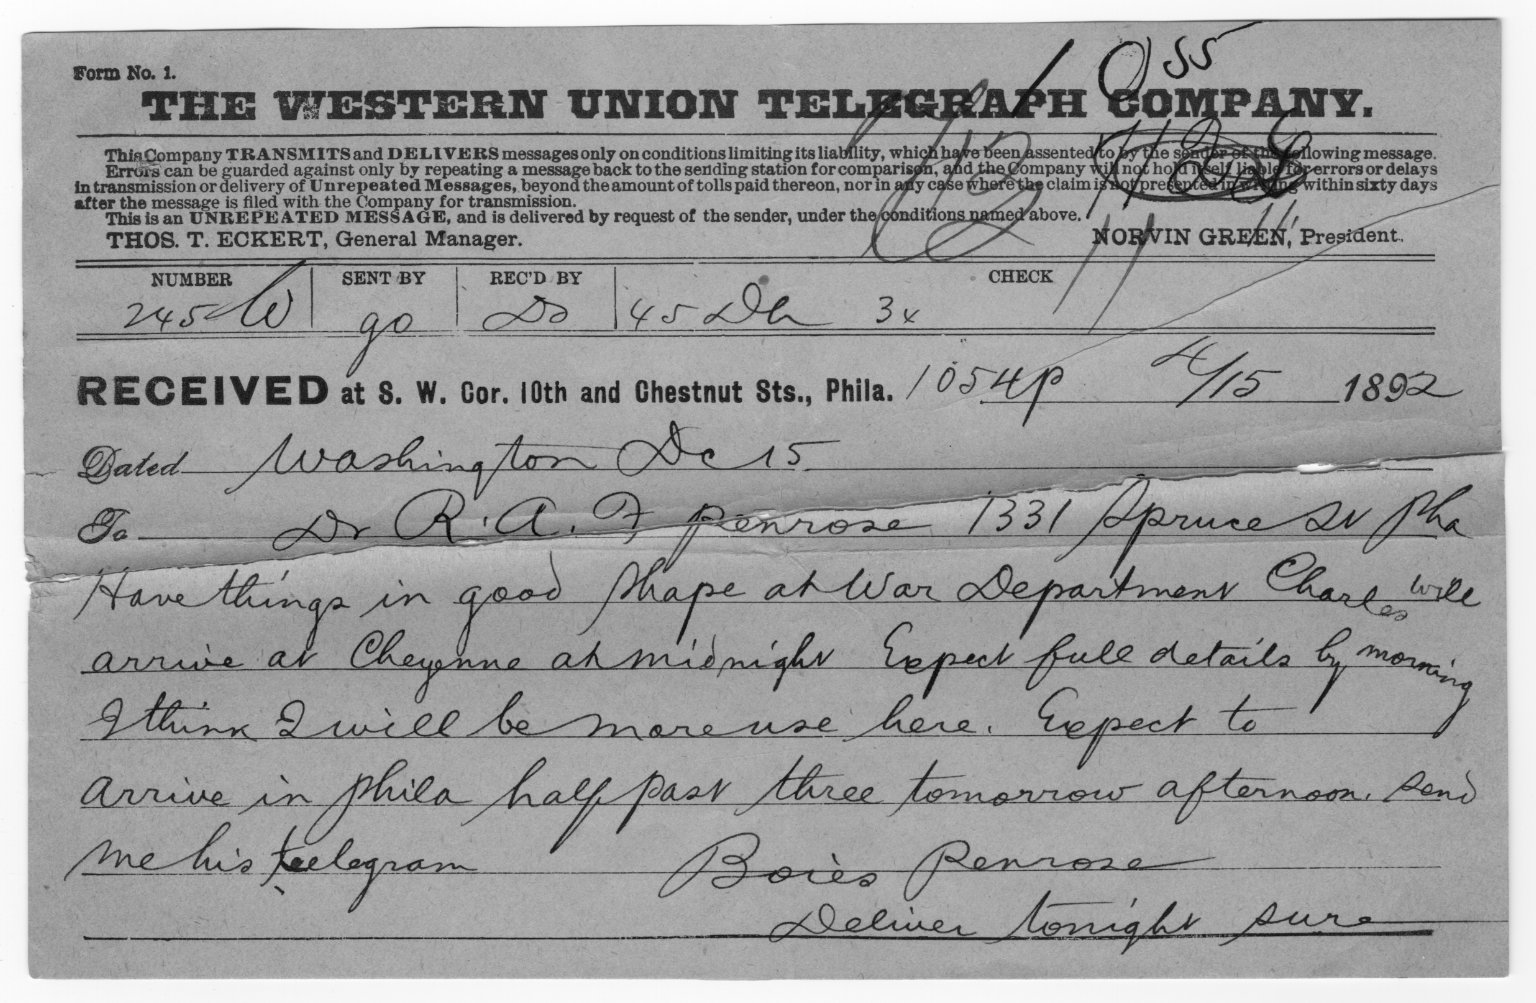 Form No. 1.
THE WESTERN UNION TELEGRAPH COMPANY.
This Company TRANSMITS and DELIVERS messages only on conditions limiting its liability, which have been assented to by the sender of the following message.
Errors can be guarded against only by repeating a message back to the sending station for comparison, and the Company will not hold itself liable for errors or delays
in transmission or delivery of Unrepeated Messages, beyond the amount of tolls paid thereon, nor in any case where the claim is not presented in writing within sixty days
after the message is filed with the Company for transmission.
This is an UNREPEATED MESSAGE, and is delivered by request of the sender, under the conditions named above.
THOS. T. ECKERT, General Manager. NORVIN GREEN, President.
NUMBER SENT BY REC'D BY CHECK
245 W go Do 45 Dh 3x
RECEIVED at S. W. Cor. 10th and Chestnut Sts., Phila. 1054p 4/15 1892
Dated Washington Dc 15
To Dr R. A. F Penrose 1331 Spruce St Pha
Have things in good shape at War Department Charles will
arrive at Cheyenne at midnight Expect full details by morning
I think I will be more use here. Expect to
arrive in phila half past three tomorrow afternoon. Send
me his telegram Boies Penrose
Deliver tonight sure